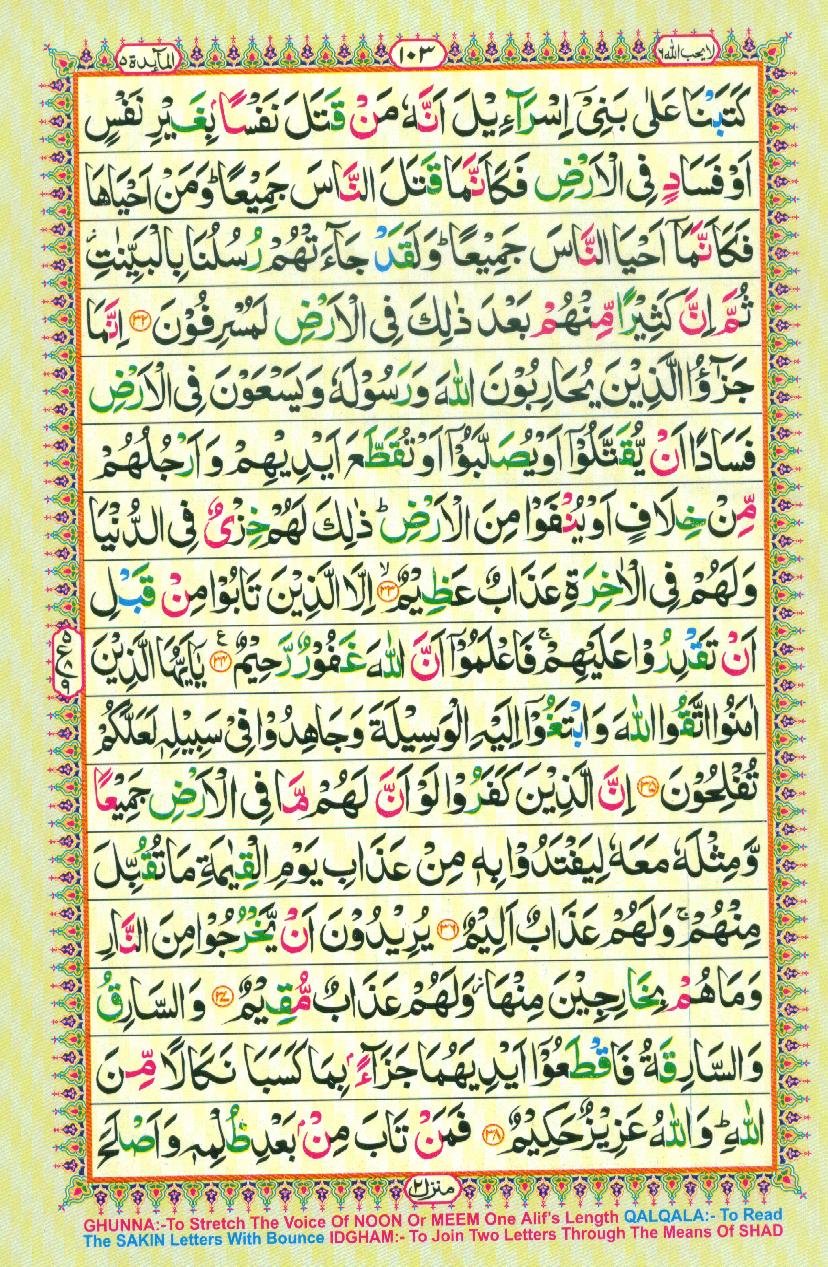 المآىِٕدة ۵
۱۰۳
لا یحب اللہ ۶
كَتَبْنَا عَلٰى بَنِیْۤ اِسْرَآءِیْلَ اَنَّهٗ مَنْ قَتَلَ نَفْسًۢا بِغَیْرِ نَفْسٍ
اَوْ فَسَادٍ فِی الْاَرْضِ فَكَاَنَّمَا قَتَلَ النَّاسَ جَمِیْعًا ؕ وَ مَنْ اَحْیَاهَا
فَكَاَنَّمَاۤ اَحْیَا النَّاسَ جَمِیْعًا ؕ وَ لَقَدْ جَآءَتْهُمْ رُسُلُنَا بِالْبَیِّنٰتِ ؗ
ثُمَّ اِنَّ كَثِیْرًا مِّنْهُمْ بَعْدَ ذٰلِكَ فِی الْاَرْضِ لَمُسْرِفُوْنَ ۳۲ اِنَّمَا
جَزٰٓؤُا الَّذِیْنَ یُحَارِبُوْنَ اللّٰهَ وَ رَسُوْلَهٗ وَ یَسْعَوْنَ فِی الْاَرْضِ
فَسَادًا اَنْ یُّقَتَّلُوْۤا اَوْ یُصَلَّبُوْۤا اَوْ تُقَطَّعَ اَیْدِیْهِمْ وَ اَرْجُلُهُمْ
مِّنْ خِلَافٍ اَوْ یُنْفَوْا مِنَ الْاَرْضِ ؕ ذٰلِكَ لَهُمْ خِزْیٌ فِی الدُّنْیَا
وَ لَهُمْ فِی الْاٰخِرَةِ عَذَابٌ عَظِیْمٌ ۙ۳۳ اِلَّا الَّذِیْنَ تَابُوْا مِنْ قَبْلِ
اَنْ تَقْدِرُوْا عَلَیْهِمْ ۚ فَاعْلَمُوْۤا اَنَّ اللّٰهَ غَفُوْرٌ رَّحِیْمٌ ۳۴ ع یٰۤاَیُّهَا الَّذِیْنَ
ع ۵ ۸ ۹
اٰمَنُوا اتَّقُوا اللّٰهَ وَ ابْتَغُوْۤا اِلَیْهِ الْوَسِیْلَةَ وَ جَاهِدُوْا فِیْ سَبِیْلِهٖ لَعَلَّكُمْ
تُفْلِحُوْنَ ۳۵ اِنَّ الَّذِیْنَ كَفَرُوْا لَوْ اَنَّ لَهُمْ مَّا فِی الْاَرْضِ جَمِیْعًا
وَّ مِثْلَهٗ مَعَهٗ لِیَفْتَدُوْا بِهٖ مِنْ عَذَابِ یَوْمِ الْقِیٰمَةِ مَا تُقُبِّلَ
مِنْهُمْ ۚ وَ لَهُمْ عَذَابٌ اَلِیْمٌ ۳۶ یُرِیْدُوْنَ اَنْ یَّخْرُجُوْا مِنَ النَّارِ
وَ مَا هُمْ بِخٰرِجِیْنَ مِنْهَا ؗ وَ لَهُمْ عَذَابٌ مُّقِیْمٌ ۳۷ وَ السَّارِقُ
وَ السَّارِقَةُ فَاقْطَعُوْۤا اَیْدِیَهُمَا جَزَآءًۢ بِمَا كَسَبَا نَكَالًا مِّنَ
اللّٰهِ ؕ وَ اللّٰهُ عَزِیْزٌ حَكِیْمٌ ۳۸ فَمَنْ تَابَ مِنْۢ بَعْدِ ظُلْمِهٖ وَ اَصْلَحَ
منزل ۲
GHUNNA:-To Stretch The Voice Of NOON Or MEEM One Alif's Length QALQALA:- To Read
The SAKIN Letters With Bounce IDGHAM:- To Join Two Letters Through The Means Of SHAD